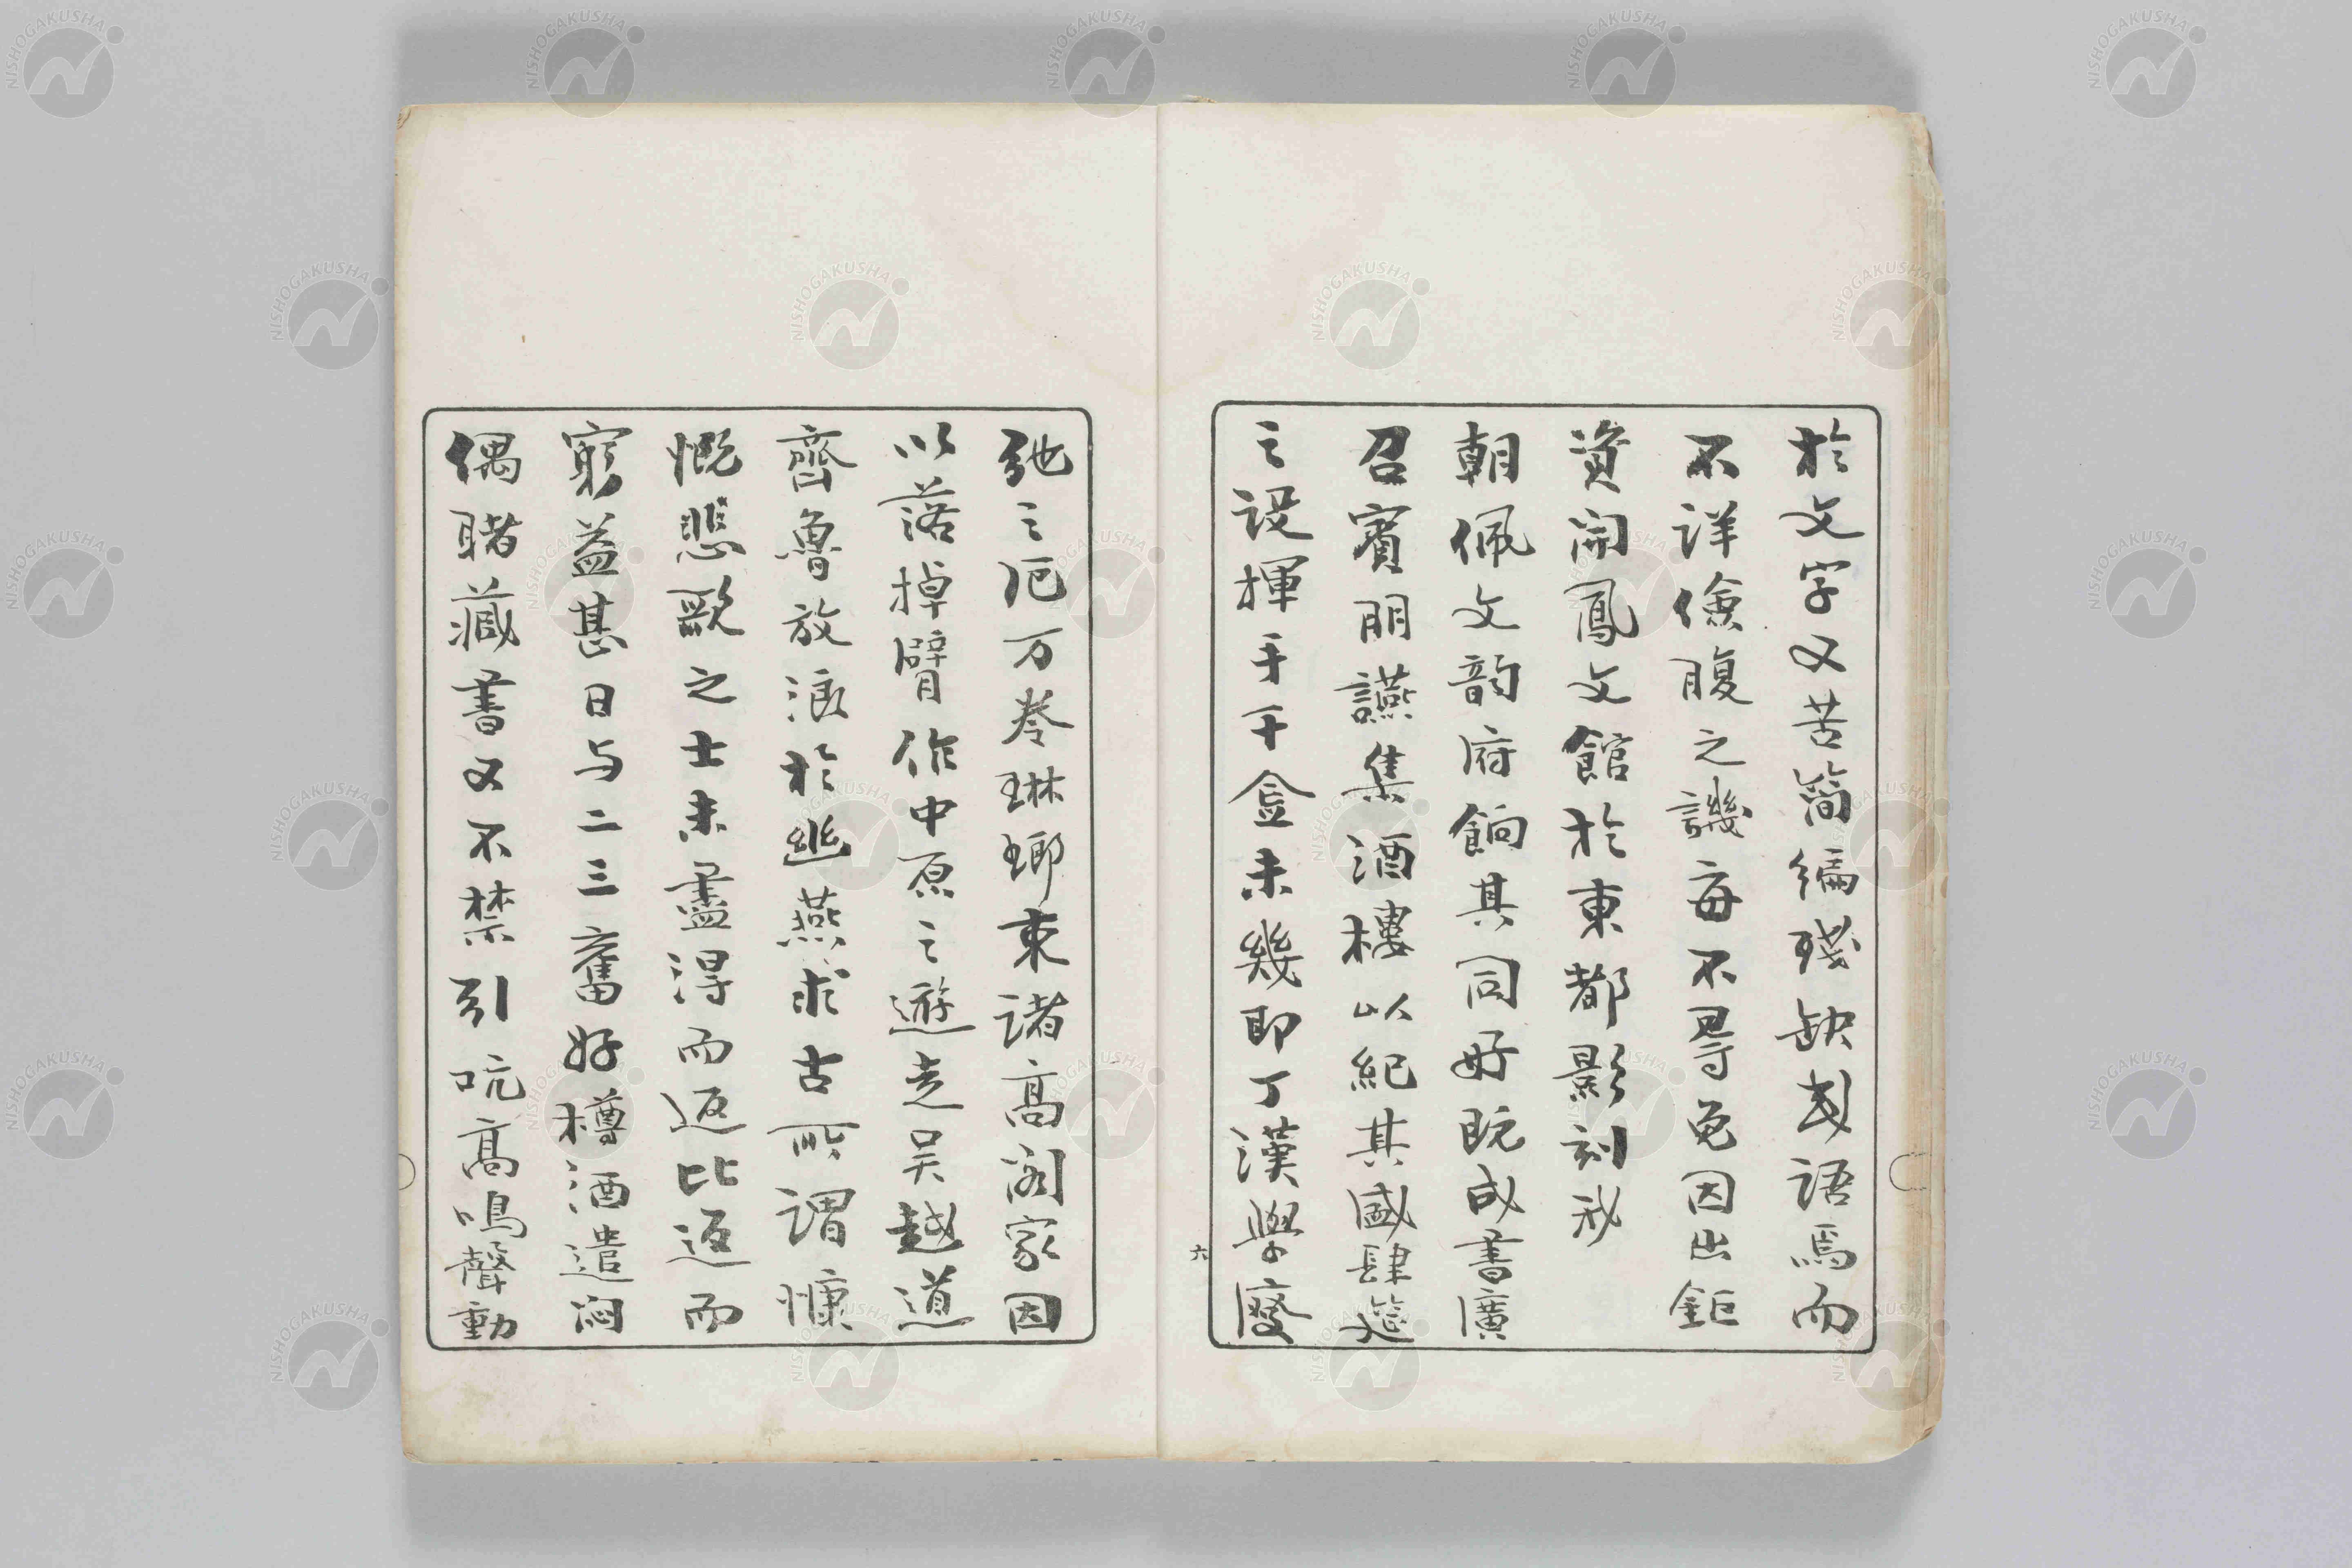 於文字又苦簡編殘缺国語焉而
不詳儉腹之譏每不得免因出鉅
資開鳳文館於東都影刻秘
朝佩文韵府餉其同好既成書廣
召賓朋讌集酒樓以紀其盛肆筵
之設揮手千金未幾即丁漢學廢
弛之厄万卷琳瑯束諸高閣家因
以落掉臂作中原之遊走吳越道
齊魯放浪於幽燕求古所謂慷
慨悲歌之士未盡得而返比返而
窮益甚日与二三舊好樽酒遣悶
偶睹藏書又不禁引吭高鳴聲動
六
NISHOGAKUSHA